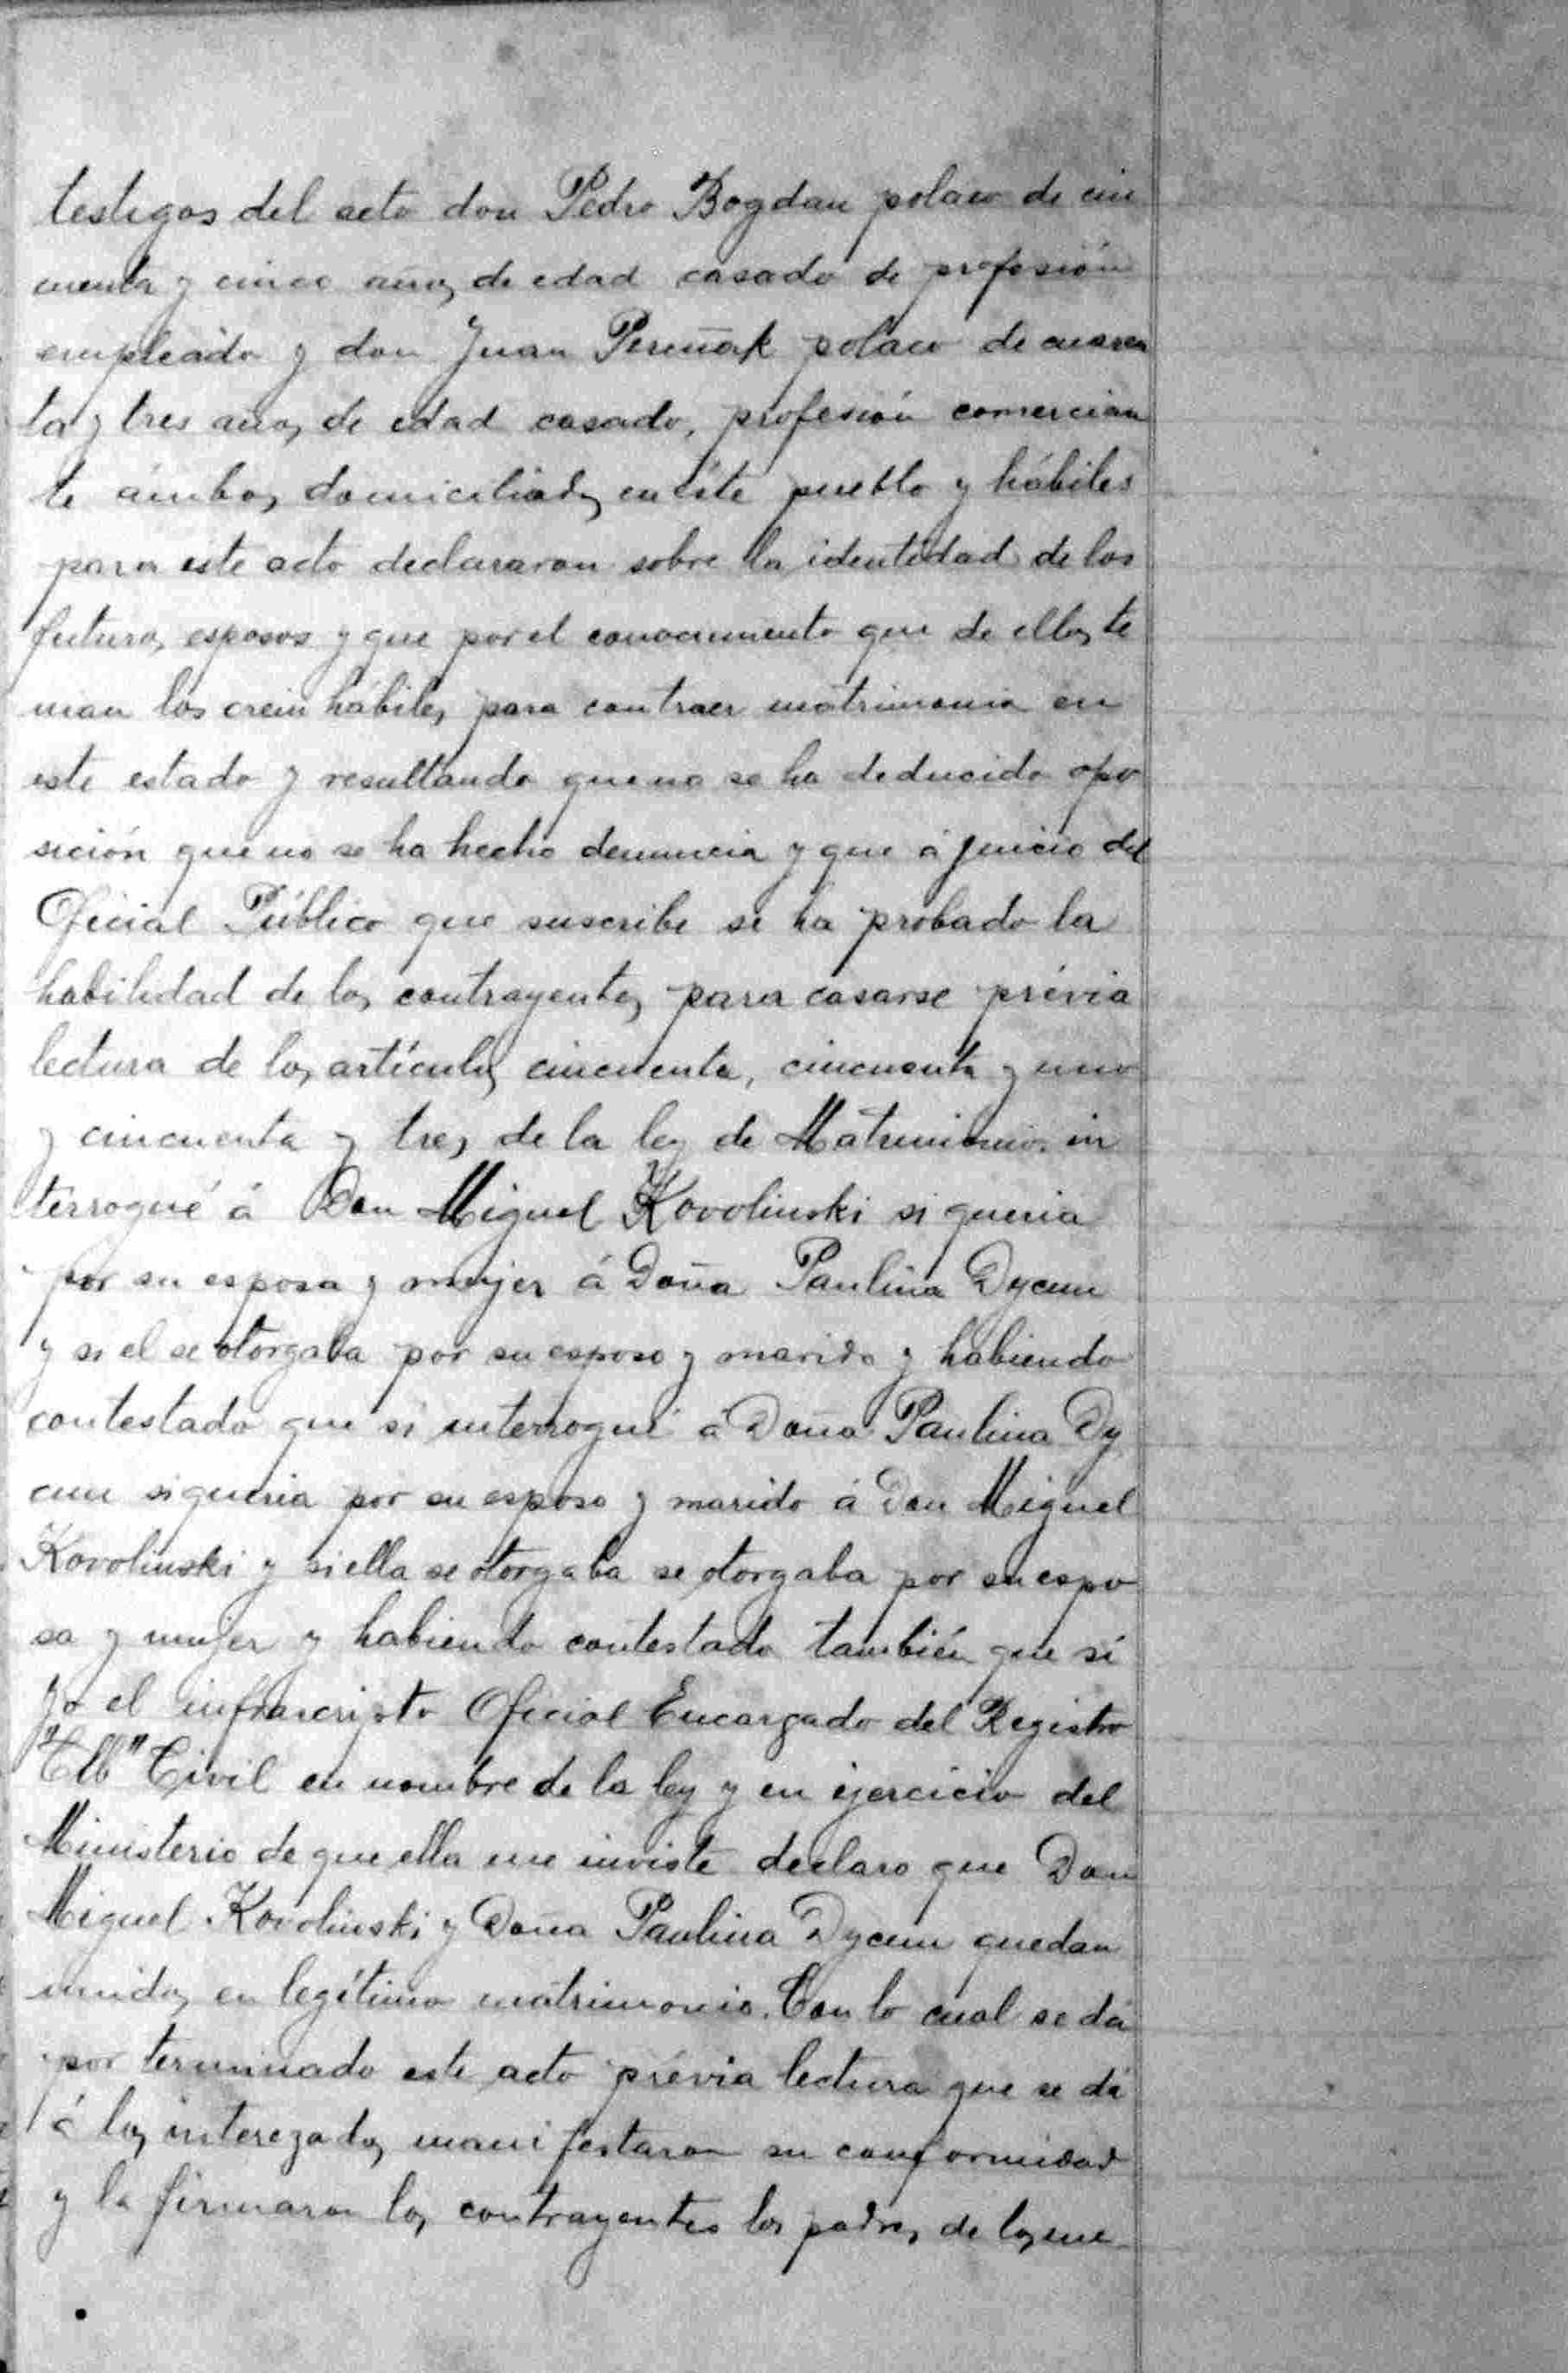 testigos del acto don Pedro Bogdan polaco de cin
cuenta y cinco años de edad casado de profesión
empleado y don Juan polaco de cuaren
ta y tres años de edad casado, profesión comercian
te ámbos domiciliados en éste pueblo y hábiles
para este acto declararon sobre la identidad de los
futuros esposos y que por el conocimiento que de ellos te
nian los crein hábiles para contraer matrimonio en
este estado y resultando que no se ha deducido opo
sición que no se ha hecho denuncia y que á juicio del
Oficial Público que suscribe se ha probado la
habilidad de los contrayentes para casarse prévia
lectura de los artículos cincuenta, cincuenta y uno
y cincuenta y tres de la ley de Matrimonio. in
terrogué á Don Miguel Kovolinski si queria
por su esposa y mujer á Doña Paulina Dycun
y si el se otorgaba por su esposo y marido y habiendo
contestado que si interrogué á Doña Paulina Dy
cun si queria por su esposo y marido á Don Miguel
Kovolinski y si ella se otorgaba se otorgaba por su espo
sa y mujer y habiendo contestado también que sí
yo el infrascripto Oficial Encargado del Registro
Civil en nombre de la ley y en ejercicio del
Ministerio de que ella me inviste declaro que Don
Miguel Kovolinski y Doña Paulina Dycun quedan
unidos en legítimo matrimonio. Con lo cual se dá
por terminado este acto prévia lectura que se dá
á los interezados manifestaron su conformidad
y la firmaron los contrayentes los padres de los me